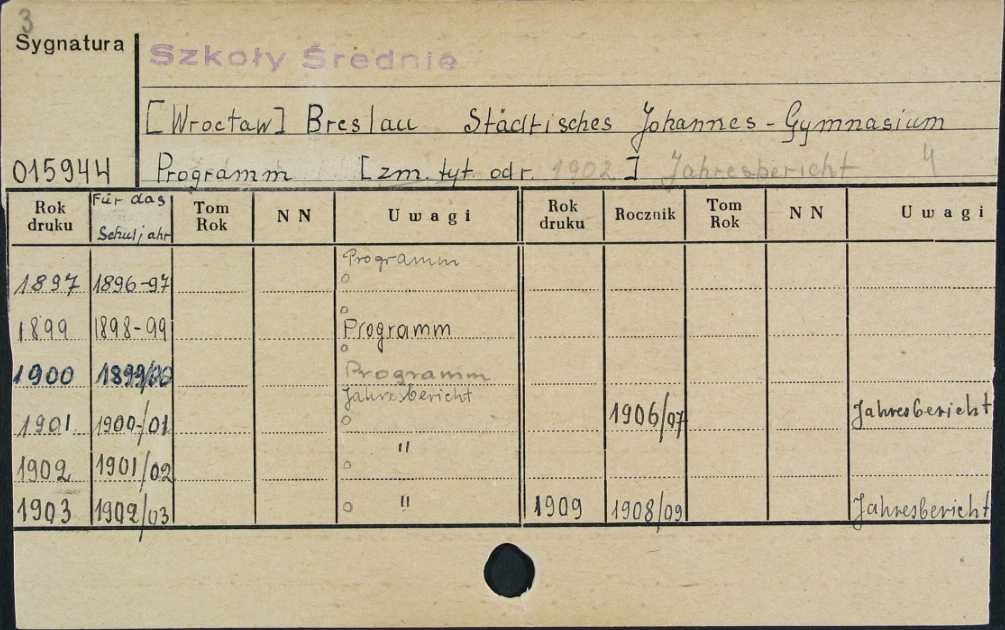 3
Sygnatura
Szkoły Średnie
[Wrocław] Breslau Städtisches Johannes-Gymnasium
015944 Programm [zm. tyt. odr. 1902] Jahresbericht 4
Rok druku Für das Schuljahr Tom Rok NN Uwagi Rok druku Rocznik Tom Rok NN Uwagi
Programm
1897 1896-97 o
o
1899 1898-99 Programm
o
1900 1899/00 Programm
Jahresbericht
1901 1900/01 o 1906/07 Jahresbericht
"
1902 1901/02 o
1903 1902/03 o " 1909 1908/09 Jahresbericht